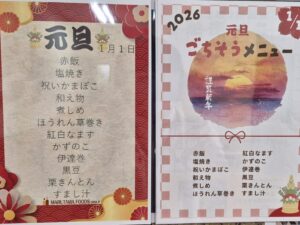 元旦
1月1日
赤飯
塩焼き
祝いかまぼこ
和え物
煮しめ
ほうれん草巻き
紅白なます
かずのこ
伊達巻
黒豆
栗きんとん
すまし汁
2026
元旦
1/1
ごちそうメニュー
謹賀新年
赤飯 紅白なます
塩焼き かずのこ
祝いかまぼこ 伊達巻
和え物 黒豆
煮しめ 栗きんとん
ほうれん草巻き すまし汁